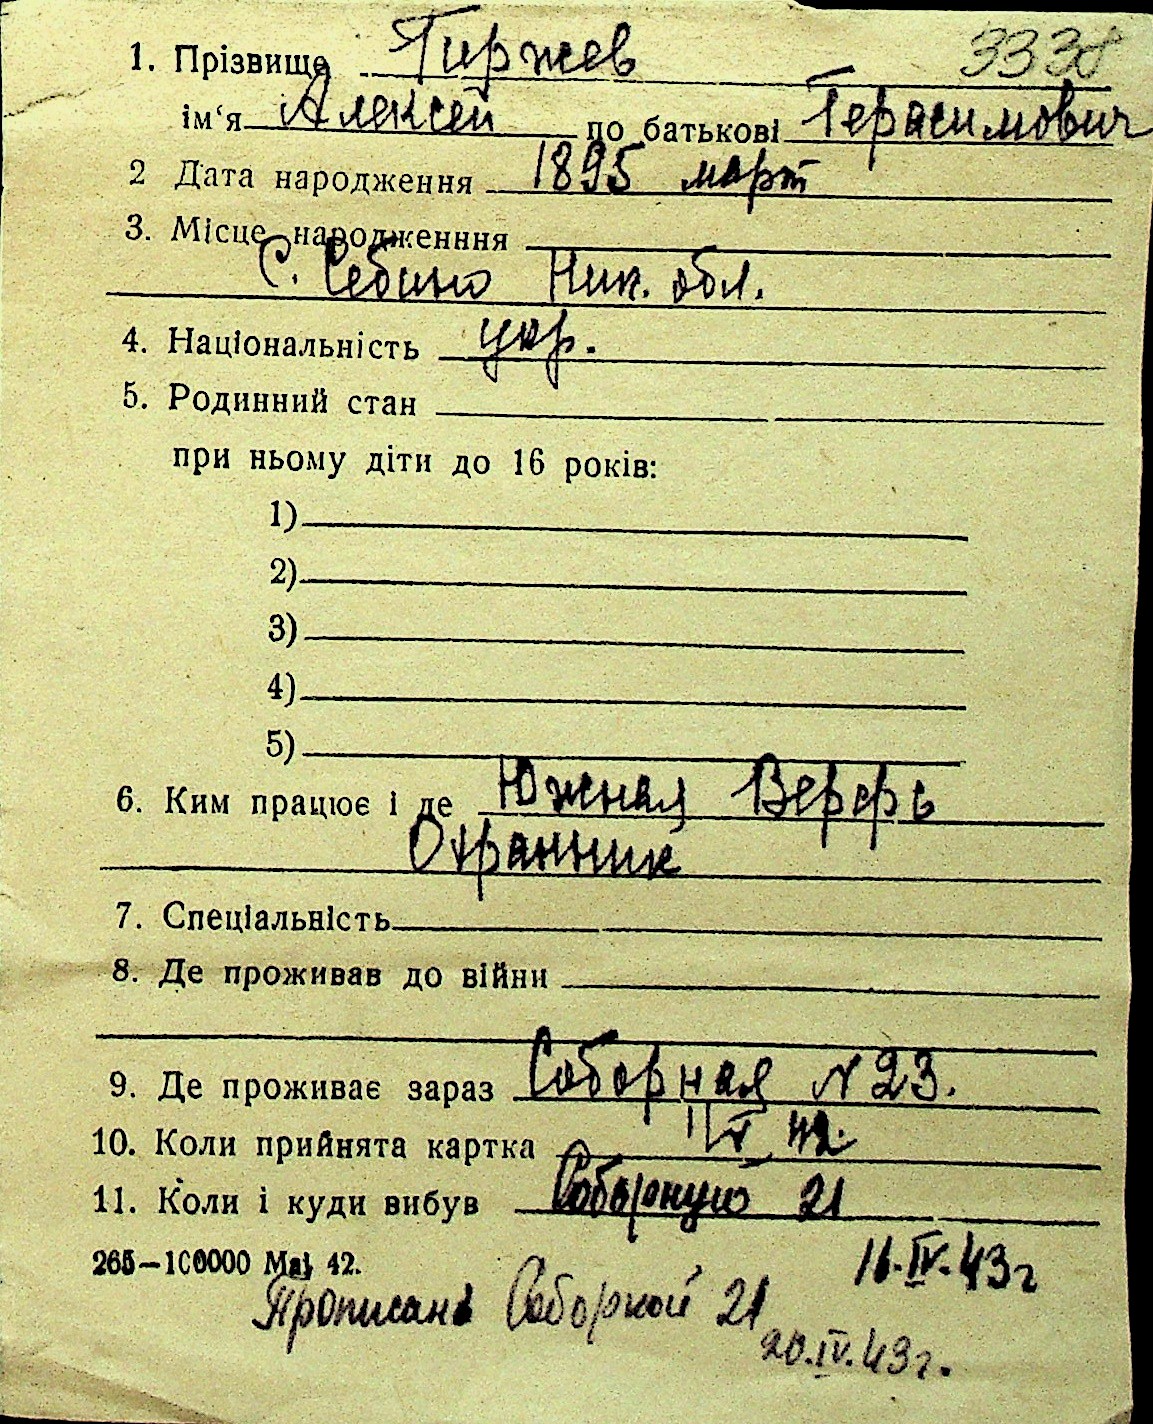 3338
1. Прізвище Гиржев
ім‘я Алексей по батькові Герасимович
2 Дата народження 1895 март
3. Місце народженння
С. Себино Ник. обл.
4. Національність укр.
5. Родинний стан
при ньому діти до 16 років:
1)
2)
3)
4)
5)
6. Ким працює і де Южная Верфь
Охранник
7. Спеціальність
8. Де проживав до війни
9. Де проживає зараз Соборная N 23.
10. Коли прийнята картка 42.
11. Коли і куди вибув Соборную 21
265—100000 Маі 42. 16.IV.43г
Прописан Соборной 21
20.IV.43г.